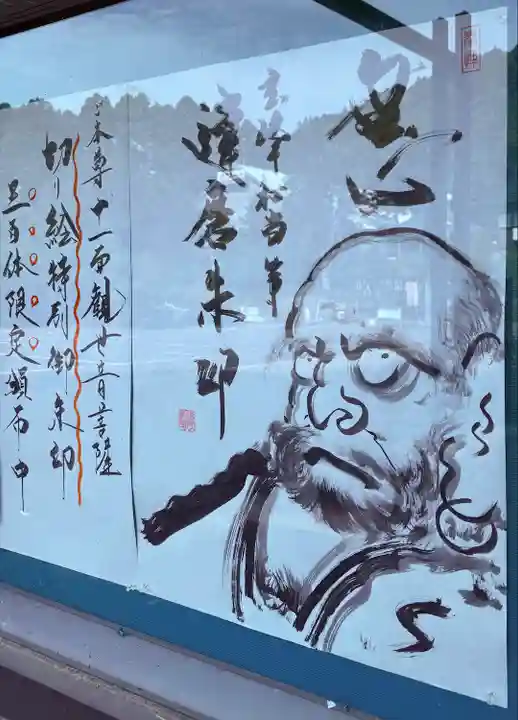 無
和尚筆
達磨朱印
本尊十一面觀世音菩薩
切り絵特別御朱印
百体限定頒布中